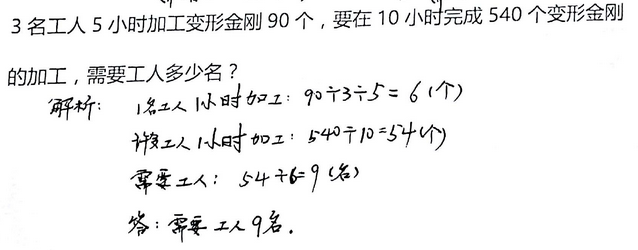 3 名工人 5 小时加工变形金刚 90 个，要在 10 小时完成 540 个变形金刚
的加工，需要工人多少名？
解析： 1名工人1小时加工：90÷3÷5=6(个)
许多工人1小时加工：540÷10=54(个)
需要工人：54÷6=9(名)
答：需要工人9名.